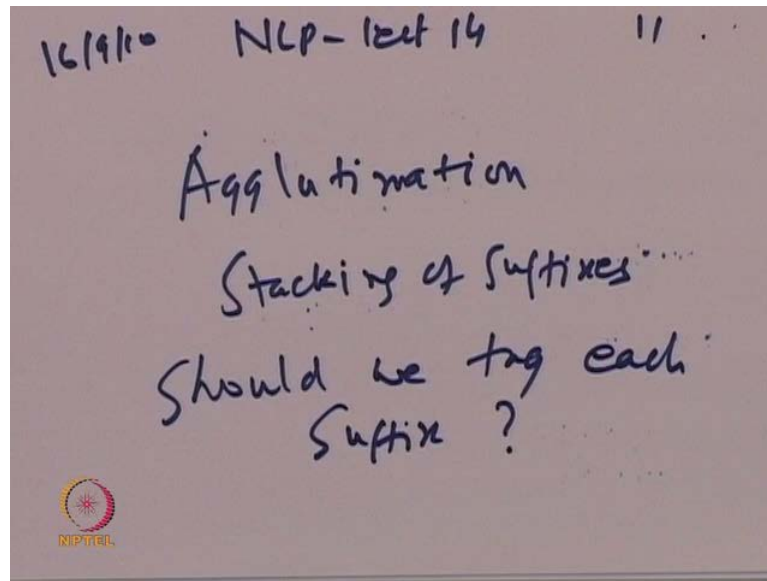 16/9/10 NLP- lect 14 11
Agglutination
Stacking of Suffixes
Should we tag each
Suffix ?
NPTEL